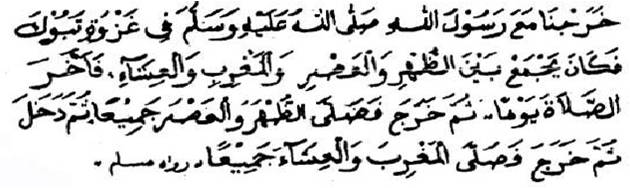 خَرَجْنَا مَعَ رَسُوْلَ اللهِ صَلَّى اللهُ عَلَيْهِ وَسَلَّمَ فِى غَزْوَةِ تَبُوْكَ
فَكَانَ يَجْمَعُ بَيْنَ الظُّهْرِ وَالْعَصْرِ وَالْمَغْرِبِ وَالْعِشَآءِ. فَأَخَّرَ
الصَّلَاةَ يَوْمًا. ثُمَّ خَرَجَ فَصَلَّى الظُّهْرَ وَالْعَصْرَ جَمِيْعًا. ثُمَّ دَخَلَ
ثُمَّ خَرَجَ فَصَلَّى الْمَغْرِبَ وَالْعِشَآءَ جَمِيْعًا. رواه مسلم.